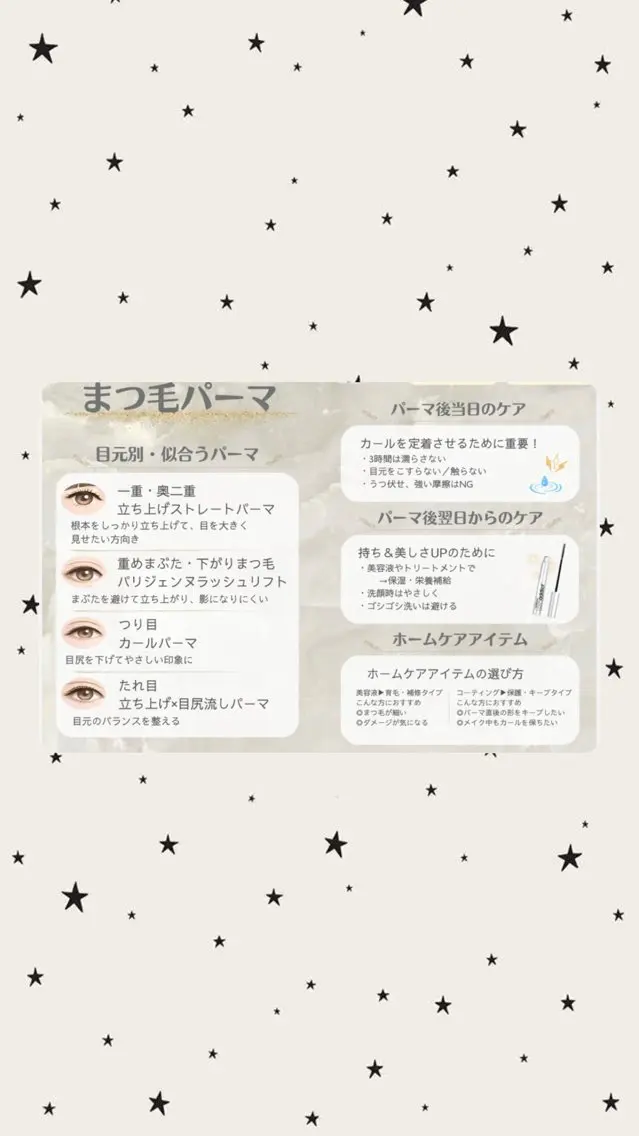 まつ毛パーマ
目元別・似合うパーマ
一重・奥二重
立ち上げストレートパーマ
根本をしっかり立ち上げて、目を大きく
見せたい方向き
重めまぶた・下がりまつ毛
パリジェンヌラッシュリフト
まぶたを避けて立ち上がり、影になりにくい
つり目
カールパーマ
目尻を下げてやさしい印象に
たれ目
立ち上げ×目尻流しパーマ
目元のバランスを整える
パーマ後当日のケア
カールを定着させるために重要！
・3時間は濡らさない
・目元をこすらない／触らない
・うつ伏せ、強い摩擦はNG
パーマ後翌日からのケア
持ち＆美しさUPのために
・美容液やトリートメントで
→保湿・栄養補給
・洗顔時はやさしく
・ゴシゴシ洗いは避ける
ホームケアアイテム
ホームケアアイテムの選び方
美容液▶育毛・補修タイプ
こんな方におすすめ
◎まつ毛が細い
◎ダメージが気になる
コーティング▶保護・キープタイプ
こんな方におすすめ
◎パーマ直後の形をキープしたい
◎メイク中もカールを保ちたい